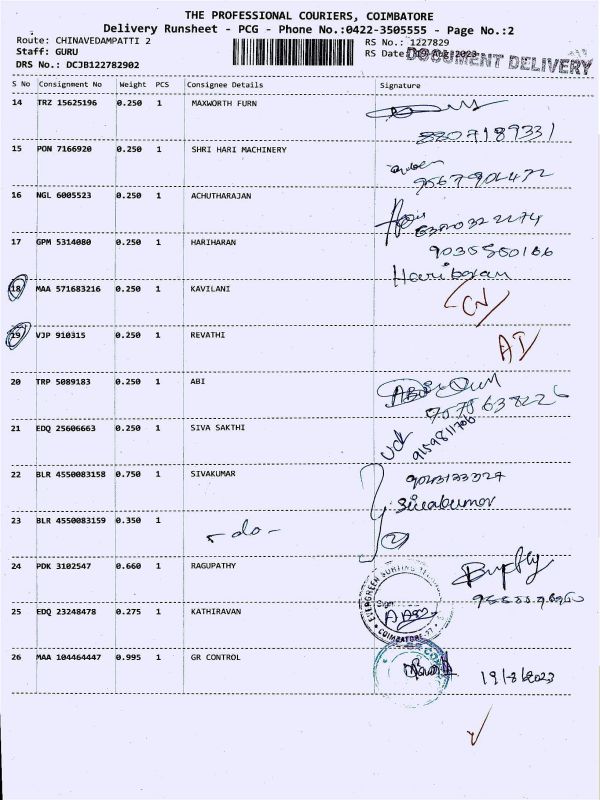 THE PROFESSIONAL COURIERS, COIMBATORE
Delivery Runsheet - PCG - Phone No.:0422-3505555 - Page No.:2
Route: CHINAVEDAMPATTI 2
RS No.: 1227829
Staff: GURU
RS Date
DOCUMENT DELIVERY
DRS No.: DCJB122782902
S No Consignment No Weight PCS Consignee Details Signature
14 TRZ 15625196 0.250 1 MAXWORTH FURN
8807189331
15 PON 7166920 0.250 1 SHRI HARI MACHINERY
16 NGL 6005523 0.250 1 ACHUTHARAJAN
17 GPM 5314080 0.250 1 HARIHARAN
Hariharan
18 MAA 571683216 0.250 1 KAVILANI
19 VJP 910315 0.250 1 REVATHI
20 TRP 5089183 0.250 1 ABI
21 EDQ 25606663 0.250 1 SIVA SAKTHI
9159811706
22 BLR 4550083158 0.750 1 SIVAKUMAR
Sivakumar
23 BLR 4550083159 0.350 1
- do -
2
24 PDK 3102547 0.660 1 RAGUPATHY
25 EDQ 23248478 0.275 1 KATHIRAVAN
COIMBATORE
26 MAA 104464447 0.995 1 GR CONTROL
19/8/2023